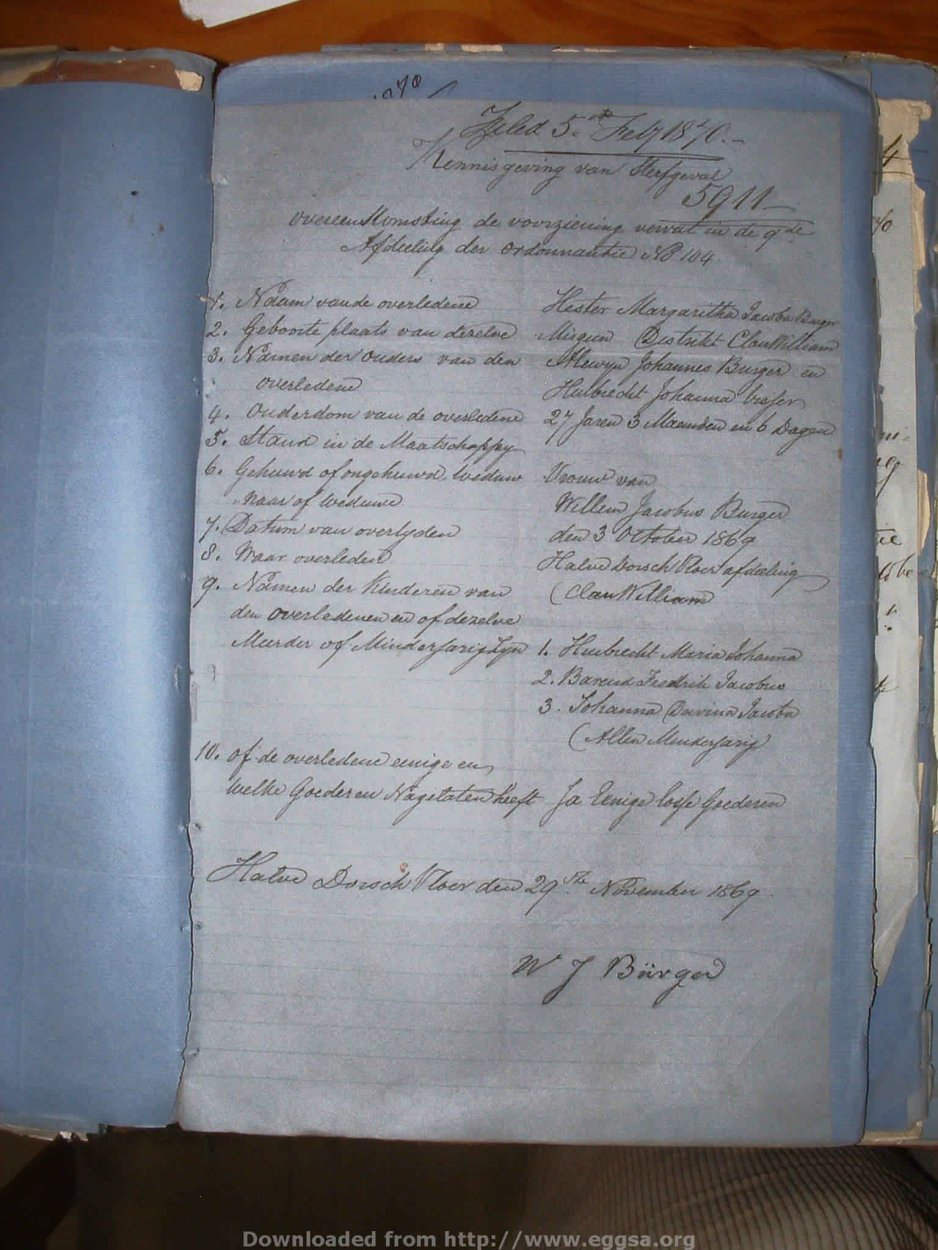 Filed 5th Feby 1870.-
Kennisgeving van Sterfgeval
5911
overeenkomsting de voorziening vervat in de 9de
Afdeeling der Ordonnantie No 104
1. Naam vande overledene Hester Margaretha Jacoba Burger
2. Geboorte plaats van dezelve Distrikt ClanWilliam
3. Namen der ouders van den Alewyn Johannes Burger en
overledene Huibrecht Johanna
4. Ouderdom van de overledene 27 Jaren 3 Maanden en 6 Dagen
5. Stand in de Maatschappy
6. Gehuwd of ongehuwd Weduw Vrouw van
naar of Weduwe Willem Jacobus Burger
7. Datum van overlyden den 3 October 1869
8. Waar overleden Halve Dorsch Vloer afdeeling
9. Namen der Kinderen van ClanWilliam
den overledenen en of dezelve
Meerder of Minderjarig Zyn 1. Huibrecht Maria Johanna
2. Barend Fredrik Jacobus
3. Johanna Davina Jacoba
(Allen Minderjarig)
10. of de overledene eenige en
welke Goederen Nagelaten heeft Ja Eenige losse Goederen
Halve Dorsch Vloer den 29ste November 1869
W J Bürger
Downloaded from http://www.eggsa.org